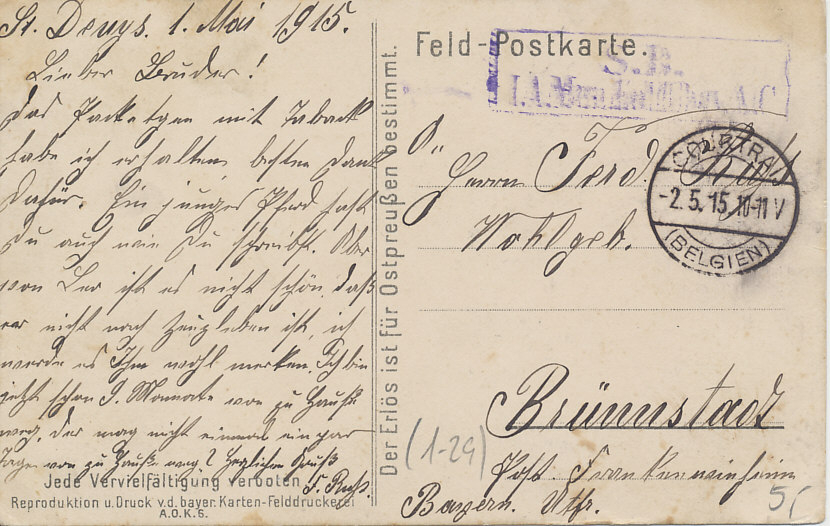 St. Denys. 1. Mai 1915.
Lieber Bruder!
Das Packetgen mit Taback
habe ich erhalten, besten Dank
dafür. Ein junges Pferd hast
Du auch wie Du schreibst. Aber
von Leo ist es nicht schön, daß
er nicht nach ist, ich
werde es Ihm wohl merken. Ich bin
jetzt schon 9. Monnate von zu Hause
weg, der mag nicht einmal ein par
Tage von zu Hause weg? Herzlichen Gruß
F. Ruß.
Jede Vervielfältigung verboten
Reproduktion u. Druck v. d. bayer. Karten-Felddruckerei
A.O.K.6.
Der Erlös ist für Ostpreußen bestimmt.
Feld-Postkarte.
S.B.
I.A.
Herrn Ferd. Ruß
Wohlgeb.
COURTRAI
-2.5.15.10-11V
(BELGIEN)
Brünnstadt
Post Frankenwinheim
Bayern. Utfr.
(1-29)
5,